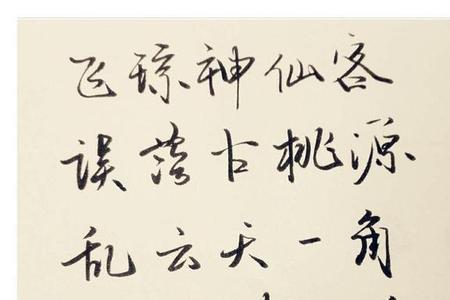 飞琼神仙客
误落古桃源
乱云天一角